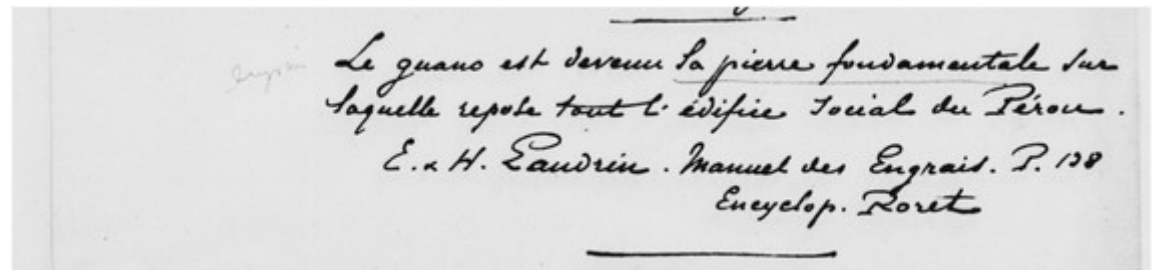 Le guano est devenu la pierre fondamentale sur
laquelle repose tout l'édifice social du Pérou.
E. & H. Landrin. Manuel des Engrais. P. 128
Encyclop. Roret